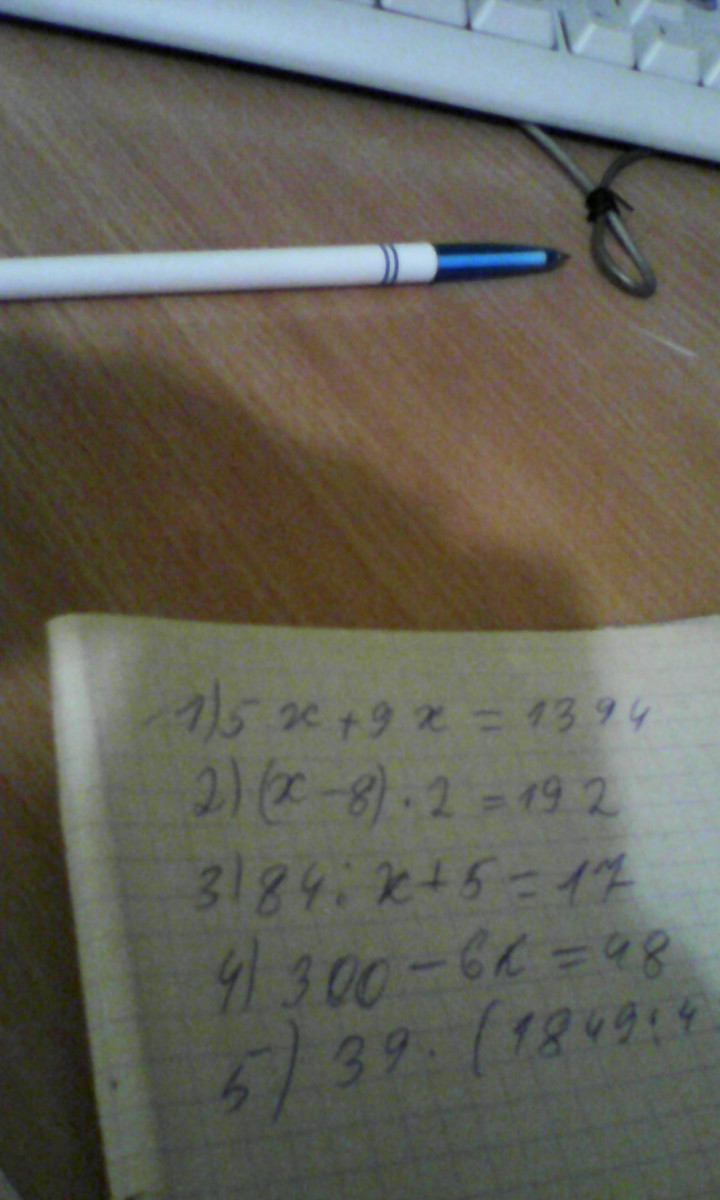 1) 5x + 9x = 1394
2) (x - 8) · 2 = 192
3) 84 : x + 5 = 17
4) 300 - 6x = 48
5) 39 · (1849 : 4